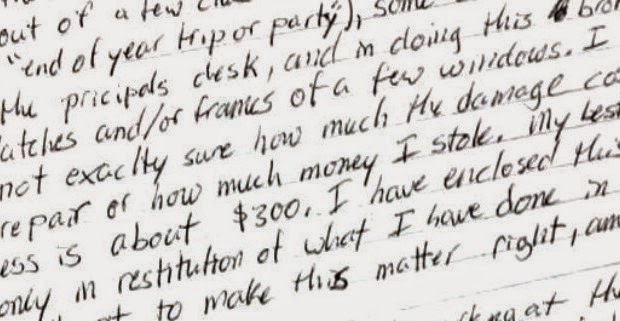 out of a few
"end of year trip or party"), some
the pricipals desk, and in doing this bro
atches and/or frames of a few windows. I
not exaclty sure how much the damage cos
repair or how much money I stole. My best
ess is about $300. I have enclosed this
only in restitution of what I have done in
to make this matter right, am
at th